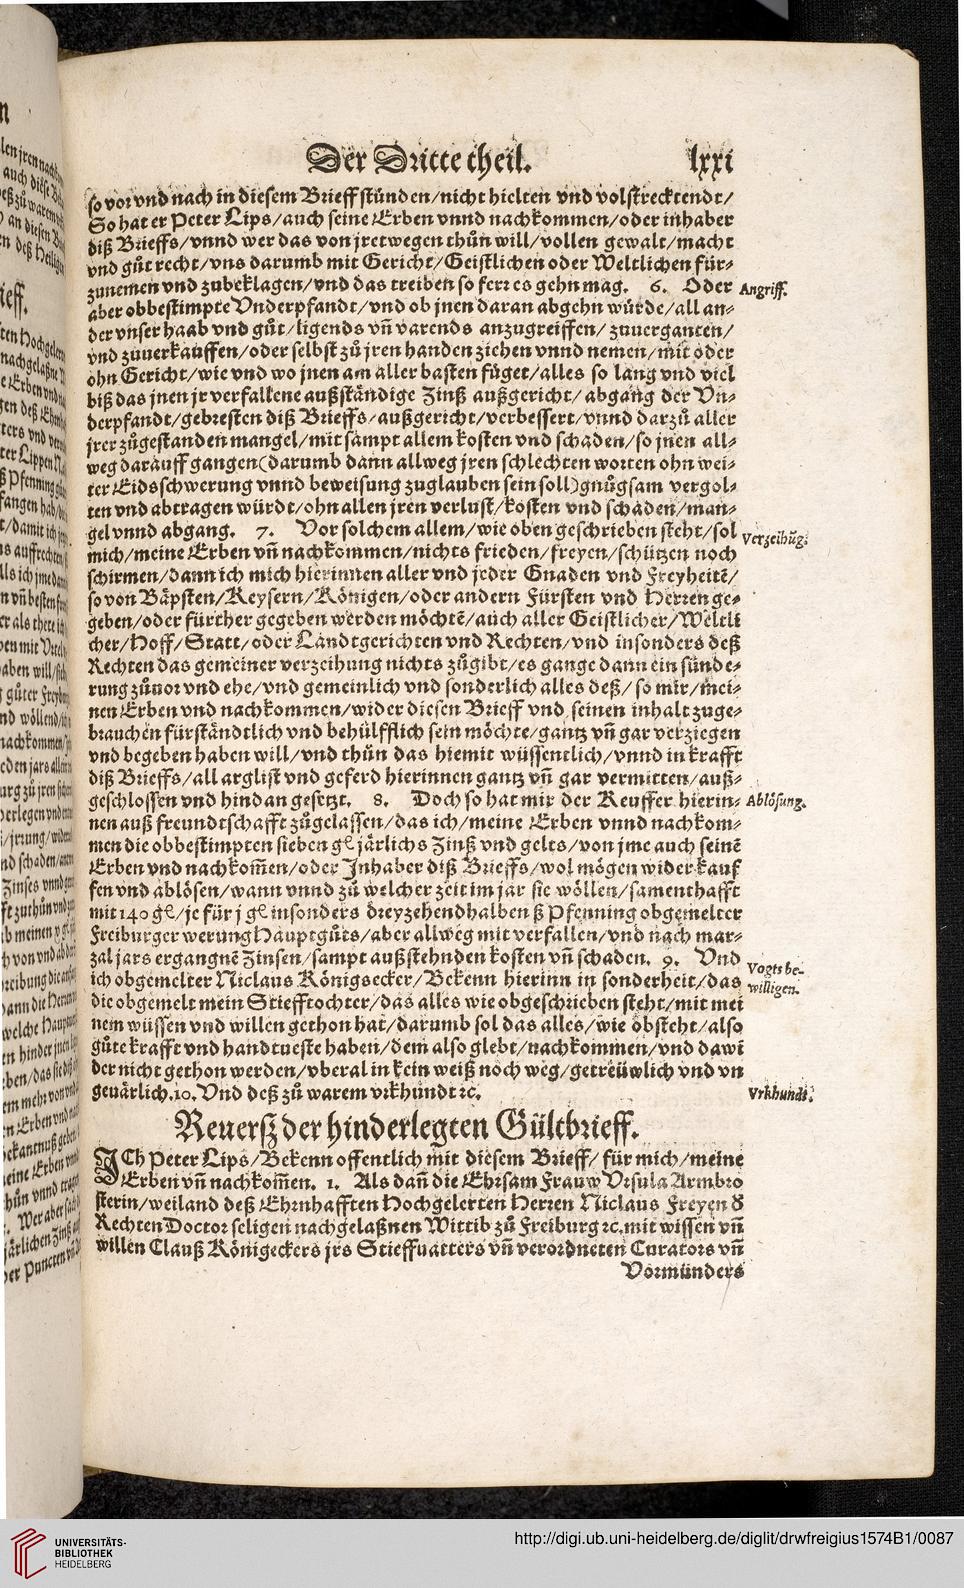 Der Dritte theil. lxxi
so vor vnd nach in diesem Brieff stünden/nicht hielten vnd volstrecktendt/
So hat er Peter Lips/auch seine Erben vnnd nachkommen/oder inhaber
diß Brieffs/vnnd wer das von jretwegen thůn will/vollen gewalt/macht
vnd gůt recht/vns darumb mit Gericht/Geistlichen oder Weltlichen für-
zunemen vnd zubeklagen/vnd das treiben so ferr es gehn mag. 6. Oder
Angriff.
aber obbestimpte Vnderpfandt/vnd ob jnen daran abgehn würde/all an-
der vnser haab vnd gůt/ligends vñ varends anzugreiffen/zuuerganten/
vnd zuuerkauffen/oder selbst zů jren handen ziehen vnnd nemen/mit oder
ohn Gericht/wie vnd wo jnen am aller basten füget/alles so lang vnd viel
biß das jnen jr verfallene außständige Zinß außgericht/abgang der Vn-
derpfandt/gebresten diß Brieffs/außgericht/verbessert/vnnd darzů aller
jrer zůgestanden mangel/mit sampt allem kosten vnd schaden/so jnen all-
weg darauff gangen(darumb dann allweg jren schlechten worten ohn wei-
ter Eidsschwerung vnnd beweisung zuglauben sein soll)gnůgsam vergol-
ten vnd abtragen würdt/ohn allen jren verlust/kosten vnd schaden/man-
gel vnnd abgang. 7. Vor solchem allem/wie oben geschrieben steht/sol
Verzeihũg.
mich/meine Erben vñ nachkommen/nichts frieden/freyen/schützen noch
schirmen/dann ich mich hierinnen aller vnd jeder Gnaden vnd Freyheitẽ/
so von Bäpsten/Keysern/Königen/oder andern Fürsten vnd Herren ge-
geben/oder fürther gegeben werden möchtẽ/auch aller Geistlicher/Weltli
cher/Hoff/Statt/oder Landtgerichten vnd Rechten/vnd insonders deß
Rechten das gemeiner verzeihung nichts zůgibt/es gange dann ein sünde-
rung zůuor vnd ehe/vnd gemeinlich vnd sonderlich alles deß/so mir/mei-
nen Erben vnd nachkommen/wider diesen Brieff vnd seinen inhalt zuge-
brauchen fürständtlich vnd behülfflich sein möchte/gantz vñ gar verziegen
vnd begeben haben will/vnd thůn das hiemit wüssentlich/vnnd in krafft
diß Brieffs/all arglist vnd geferd hierinnen gantz vñ gar vermitten/auß-
geschlossen vnd hindan gesetzt. 8. Doch so hat mir der Keuffer hierin-
Ablösung.
nen auß freundtschafft zůgelassen/das ich/meine Erben vnnd nachkom-
men die obbestimpten sieben gl järlichs Zinß vnd gelts/von jme auch seinẽ
Erben vnd nachkom̃en/oder Inhaber diß Brieffs/wol mögen widerkauf
fen vnd ablösen/wann vnnd zů welcher zeit im jar sie wöllen/samenthafft
mit 140 gl/je für j gl insonders dreyzehendhalben ß Pfenning obgemelter
Freiburger werung Hauptgůts/aber allweg mit verfallen/vnd nach mar-
zal jars ergangnẽ Zinsen/sampt außstehnden kosten vñ schaden. 9. Vnd
Vogts be-
willigen.
ich obgemelter Niclaus Königsecker/Bekenn hierinn in sonderheit/das
die obgemelt mein Stiefftochter/das alles wie obgeschrieben steht/mit mei
nem wüssen vnd willen gethon hat/darumb sol das alles/wie obsteht/also
gůte krafft vnd handtueste haben/dem also glebt/nachkommen/vnd dawi
der nicht gethon werden/vberal in kein weiß noch weg/getreüwlich vnd vn
geuärlich.10. Vnd deß zů warem vrkhundt ꝛc.
Vrkhundt.
Reuersz der hinderlegten Gültbrieff.
ICh Peter Lips/Bekenn offentlich mit diesem Brieff/für mich/meine
Erben vñ nachkom̃en. 1. Als dañ die Ehrsam Frauw Vrsula Armbro
sterin/weiland deß Ehrnhafften Hochgelerten Herren Niclaus Freyen d̾
Rechten Doctor seligen nachgelaßnen Wittib zů Freiburg ꝛc. mit wissen vñ
willen Clauß Königeckers jrs Stieffuatters vñ verordneten Curators vñ
Vormünders
UNIVERSITÄTS-
BIBLIOTHEK
HEIDELBERG
http://digi.ub.uni-heidelberg.de/diglit/drwfreigius1574B1/0087